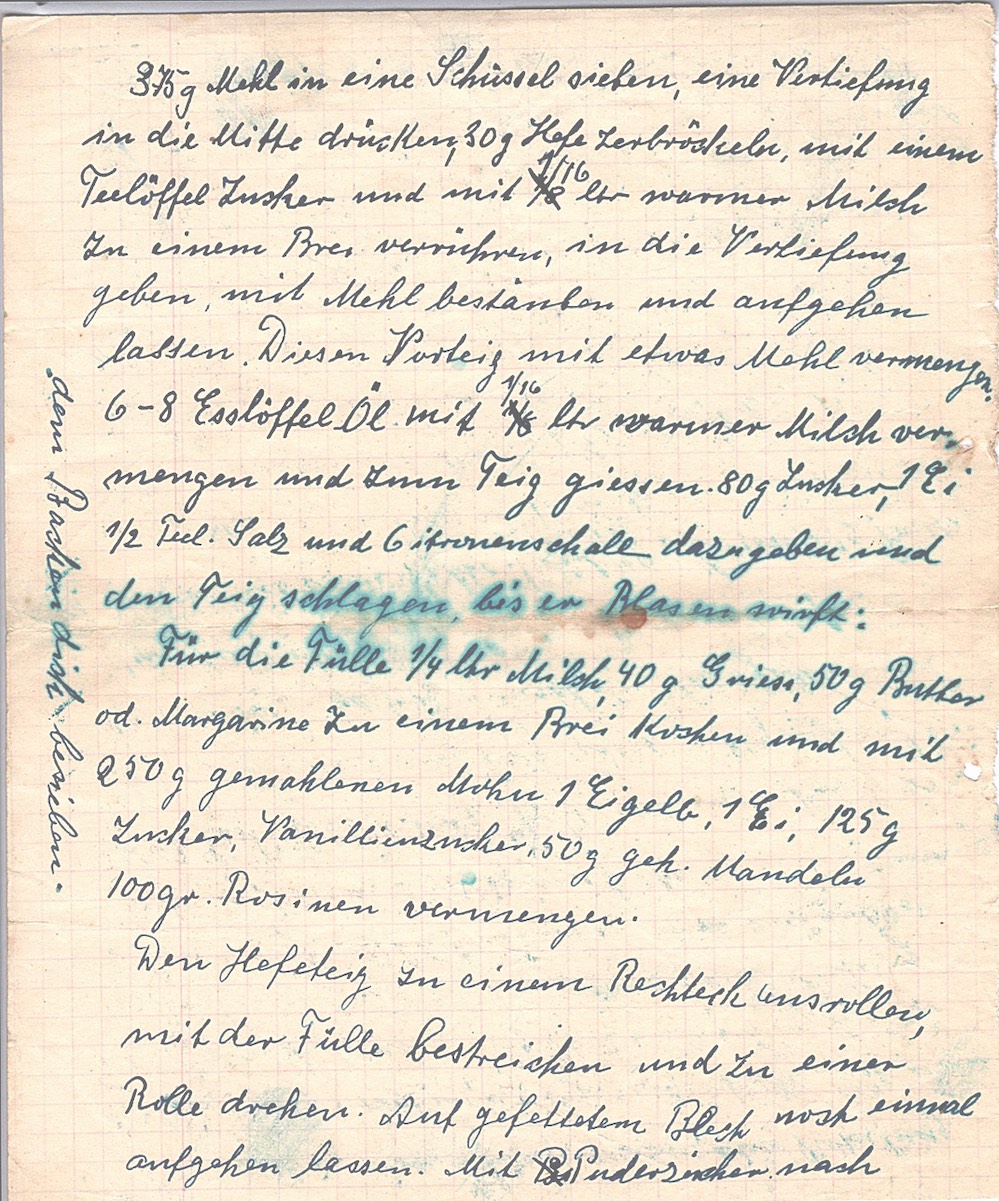 375g Mehl in eine Schüssel sieben, eine Vertiefung
in die Mitte drücken, 30g Hefe zerbröckeln, mit einem
Teelöffel Zucker und mit 1/16 ltr warmer Milch
zu einem Brei verrühren, in die Vertiefung
geben, mit Mehl bestäuben und aufgehen
lassen. Diesen Vorteig mit etwas Mehl vermengen.
6-8 Esslöffel Öl mit 1/16 ltr warmer Milch ver-
mengen und zum Teig giessen. 80g Zucker, 1 Ei
1/2 Teel. Salz und Citronenschale dazugeben und
den Teig schlagen, bis er Blasen wirft.
Für die Fülle 1/4 ltr Milch, 40 g Griess, 50g Butter
od. Margarine zu einem Brei kochen und mit
250g gemahlenen Mohn 1 Eigelb, 1 Ei, 125g
Zucker, Vanillienzucker, 50g geh. Mandeln
100gr. Rosinen vermengen.
Den Hefeteig zu einem Rechteck ausrollen,
mit der Fülle bestreichen und zu einer
Rolle drehen. Auf gefettetem Blech noch einmal
aufgehen lassen. Mit Puderzucker nach
dem Backen dick besieben.